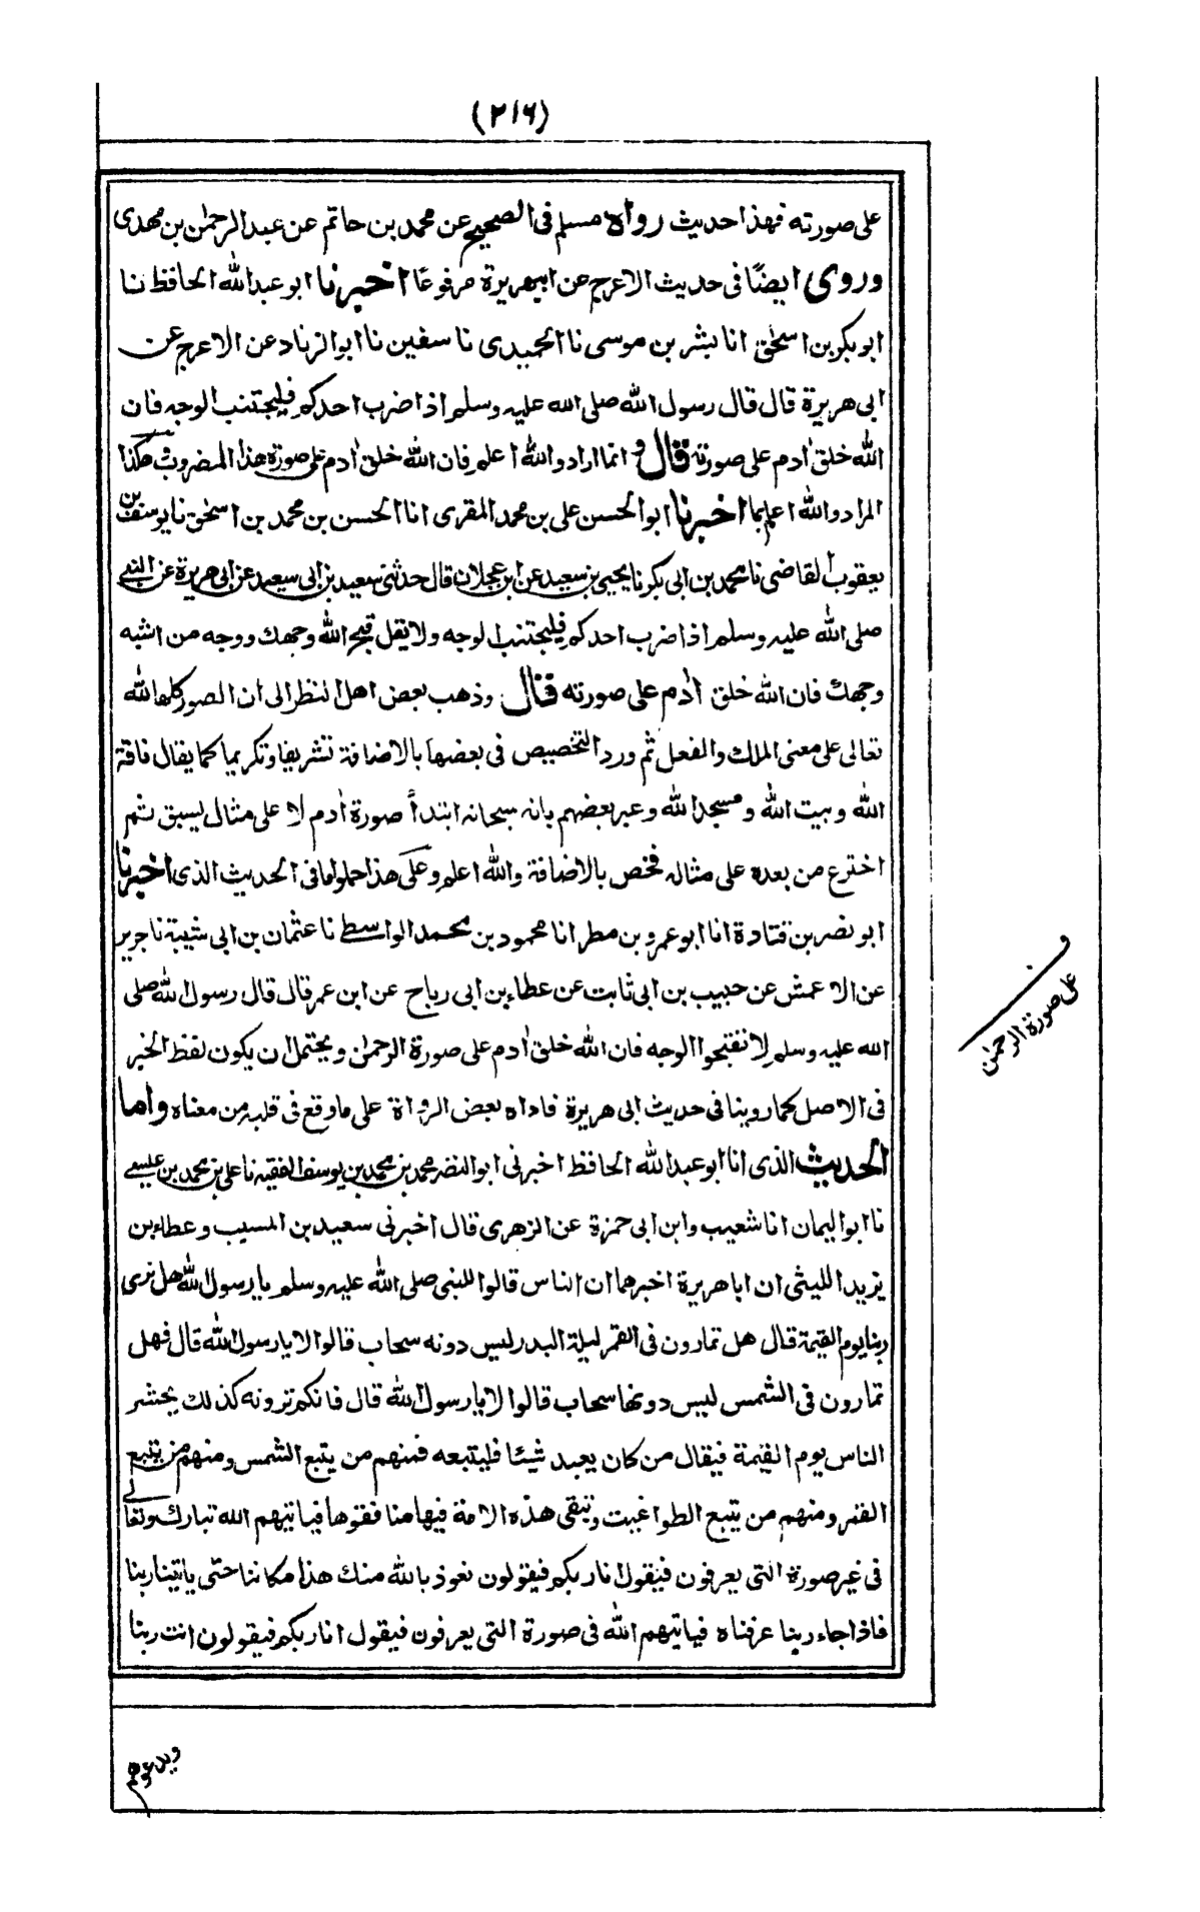 (٢١٦)
على صورته فهذا حديث رواه مسلم فى الصحيح عن محمد بن حاتم عن عبد الرحمٰن بن مهدى
وروى ايضًا فى حديث الاعرج عن ابيهريرة مرفوعًا اخبرنا ابو عبد الله الحافظ ثنا
ابو بكر بن اسحٰق انا بشر بن موسى نا الحميدى نا سفين نا ابو الزناد عن الاعرج عن
ابى هريرة قال قال رسول الله صلى الله عليه وسلم اذا ضرب احدكم فليجتنب الوجه فان
الله خلق اٰدم على صورته قال و انما اراد والله اعلم فان الله خلق اٰدم على صورة هذا المضروب و هكذا
المراد والله اعلم بما اخبرنا ابو الحسن على بن محمد المقرى انا الحسن بن محمد بن اسحٰق نا يوسف بن
يعقوب القاضى نا محمد بن ابى بكر نا يحيى بن سعيد عن ابن عجلان قال حدثنى سعيد بن ابى سعيد عن ابى هريرة عن النبى
صلى الله عليه وسلم اذا ضرب احدكم فليجتنب الوجه ولا يقل قبح الله وجهك ووجه من اشبه
وجهك فان الله خلق اٰدم على صورته قال وذهب بعض اهل النظر الى ان الصور كلها لله
تعالى على معنى الملك والفعل ثم ورد التخصيص فى بعضها بالاضافة تشريفا وتكريما كما يقال ناقة
الله وبيت الله ومسجد الله وعبر بعضهم بانه سبحانه ابتدأ صورة اٰدم لا على مثال يسبق ثم
اخترع من بعده على مثاله فخص بالاضافة والله اعلم وعلى هذا حملوا ما فى الحديث الذى اخبرنا
ابو نصر بن قتادة انا ابو عمرو بن مطر انا محمود بن محمد الواسطى نا عثمان بن ابى شيبة نا جرير
عن الاعمش عن حبيب بن ابى ثابت عن عطاء بن ابى رباح عن ابن عمر قال قال رسول الله صلى
الله عليه وسلم لا تقبحوا الوجه فان الله خلق اٰدم على صورة الرحمٰن ويحتمل ان يكون لفظ الخبر
فى الاصل كما روينا فى حديث ابى هريرة فاداه بعض الرواة على ما وقع فى قلبه من معناه واما
الحديث الذى انا ابو عبد الله الحافظ اخبرنى ابو النضر محمد بن محمد بن يوسف الفقيه نا على بن محمد بن عيسى
نا ابو اليمان انا شعيب وابن ابى حمزة عن الزهرى قال اخبرنى سعيد بن المسيب وعطاء بن
يزيد الليثى ان ابا هريرة اخبرهما ان الناس قالوا للنبى صلى الله عليه وسلم يا رسول الله هل نرى
ربنا يوم القيمة قال هل تمارون فى القمر ليلة البدر ليس دونه سحاب قالوا لا يا رسول الله قال فهل
تمارون فى الشمس ليس دونها سحاب قالوا لا يا رسول الله قال فانكم ترونه كذلك يحشر
الناس يوم القيمة فيقال من كان يعبد شيئا فليتبعه فمنهم من يتبع الشمس ومنهم من يتبع
القمر ومنهم من يتبع الطواغيت وتبقى هذه الامة فيها منافقوها فياتيهم الله تبارك وتعالى
فى غير صورة التى يعرفون فيقول انا ربكم فيقولون نعوذ بالله منك هذا مكاننا حتى ياتينا ربنا
فاذا جاء ربنا عرفناه فياتيهم الله فى صورة التى يعرفون فيقول انا ربكم فيقولون انت ربنا
على صورة الرحمٰن
ويدعوهم